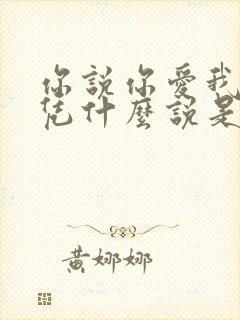 你說你愛我
憑什麼說是
黃娜娜